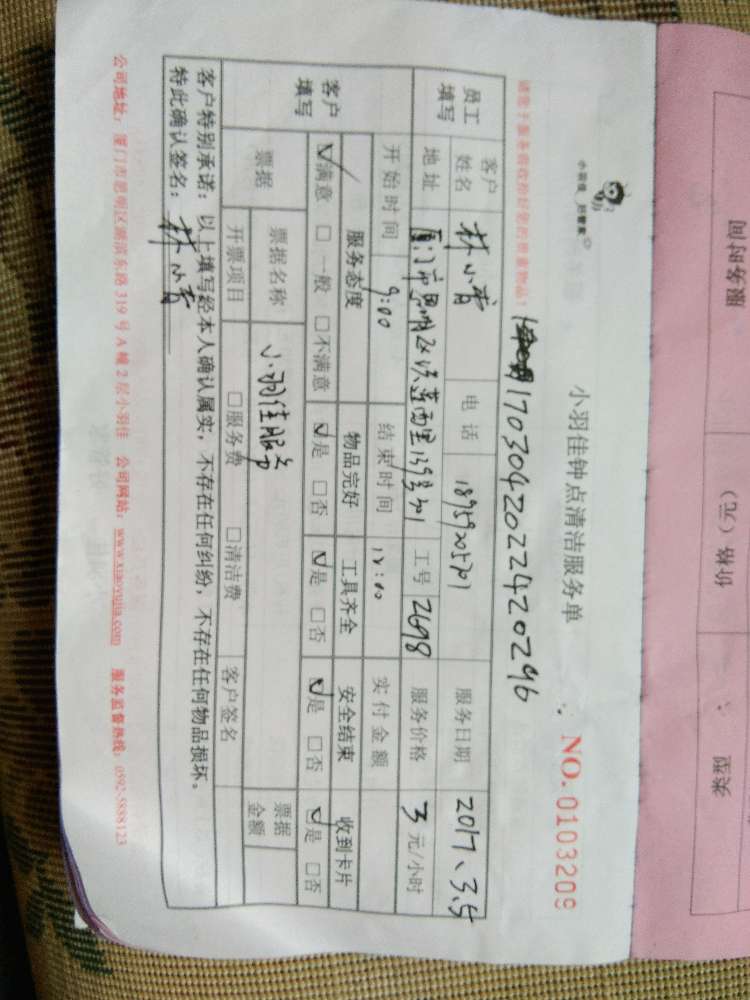 小羽佳钟点清洁服务单
NO. 0103209
小羽佳 好管家
170304202242029 6
请您于服务前收拾好您的贵重物品!
员工填写 客户姓名 林小青 电话 服务日期 2017、3.5
地址 厦门市思明区 工号 2698 服务价格 3 元/小时
开始时间 9:00 结束时间 12:00 实付金额
客户填写 服务态度 物品完好 工具齐全 安全结束 收到卡片
☑满意 □一般 □不满意 ☑是 □否 ☑是 □否 ☑是 □否 ☑是 □否
票据 票据名称 小羽佳服务 票据金额
开票项目 □服务费 □清洁费 客户签名
客户特别承诺:以上填写经本人确认属实,不存在任何纠纷,不存在任何物品损坏。
特此确认签名:林小青
公司地址:厦门市思明区湖滨东路319号A幢2层小羽佳 公司网站:www.xiaoyujia.com 服务监督热线:0592-5888123
服务时间 价格(元) 类型